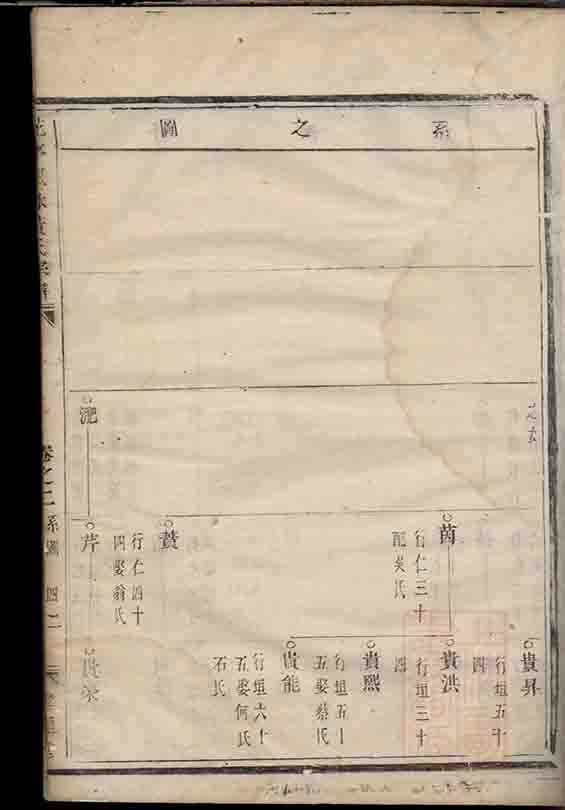 系之圖
貴昇
行垣五十
四
茵
行仁三十
配吳氏
貴洪
行垣三十
四
貴熙
行垣五十
五娶蔡氏
貴能
行垣六十
五娶何氏
石氏
贊
行仁四十
四娶翁氏
淝
芹
卷之二
系圖
四二